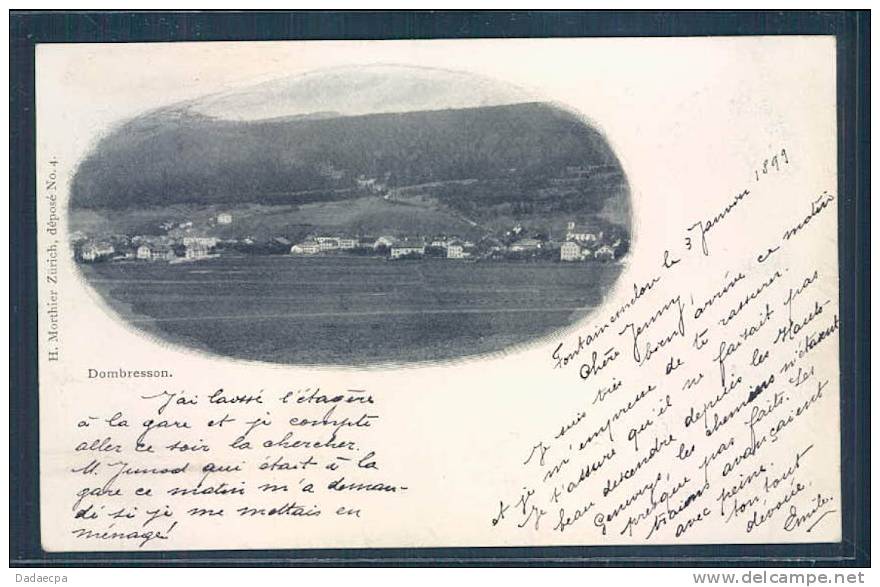 H. Morthier Zürich, déposé No. 4.
Dombresson.
Fontainemelon le 3 Janvier 1899
Chère Jenny,
Je suis très bien arrivé ce matin
et je m'empresse de te rassurer.
Je t'assure qu'il ne faisait pas
beau descendre depuis les Hauts-
Geneveys, les chemins n'étaient
presque pas faits. Les
traions avançaient
avec peine.
ton tout
dévoué.
Emile.
J'ai laissé l'étagère
à la gare et je compte
aller ce soir la chercher.
M. Junod qui était à la
gare ce matin m'a deman-
dé si je me mettais en
ménage!
Dadaecpa
www.delcampe.net